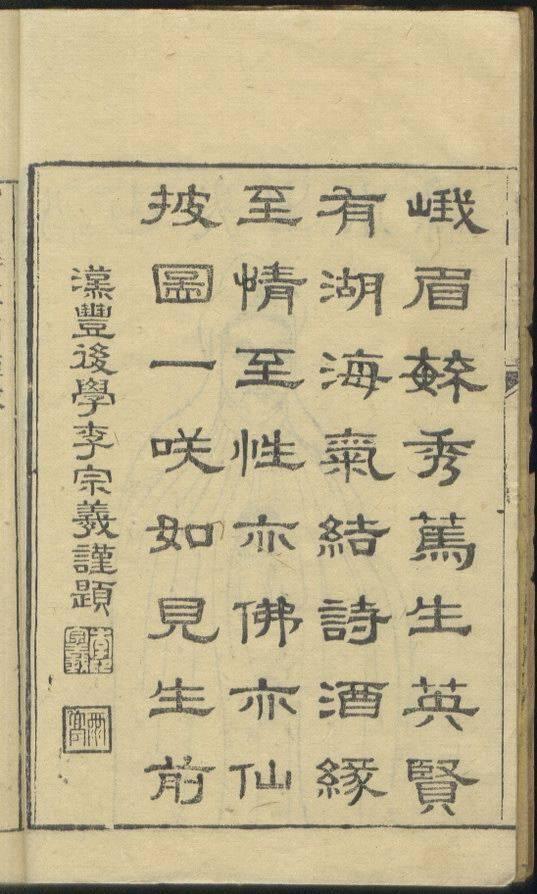 峨眉鍾秀篤生英賢
有湖海氣結詩酒緣
至情至性亦佛亦仙
披圖一咲如見生前
漢豐後學李宗羲謹題
李印宗羲
雨亭